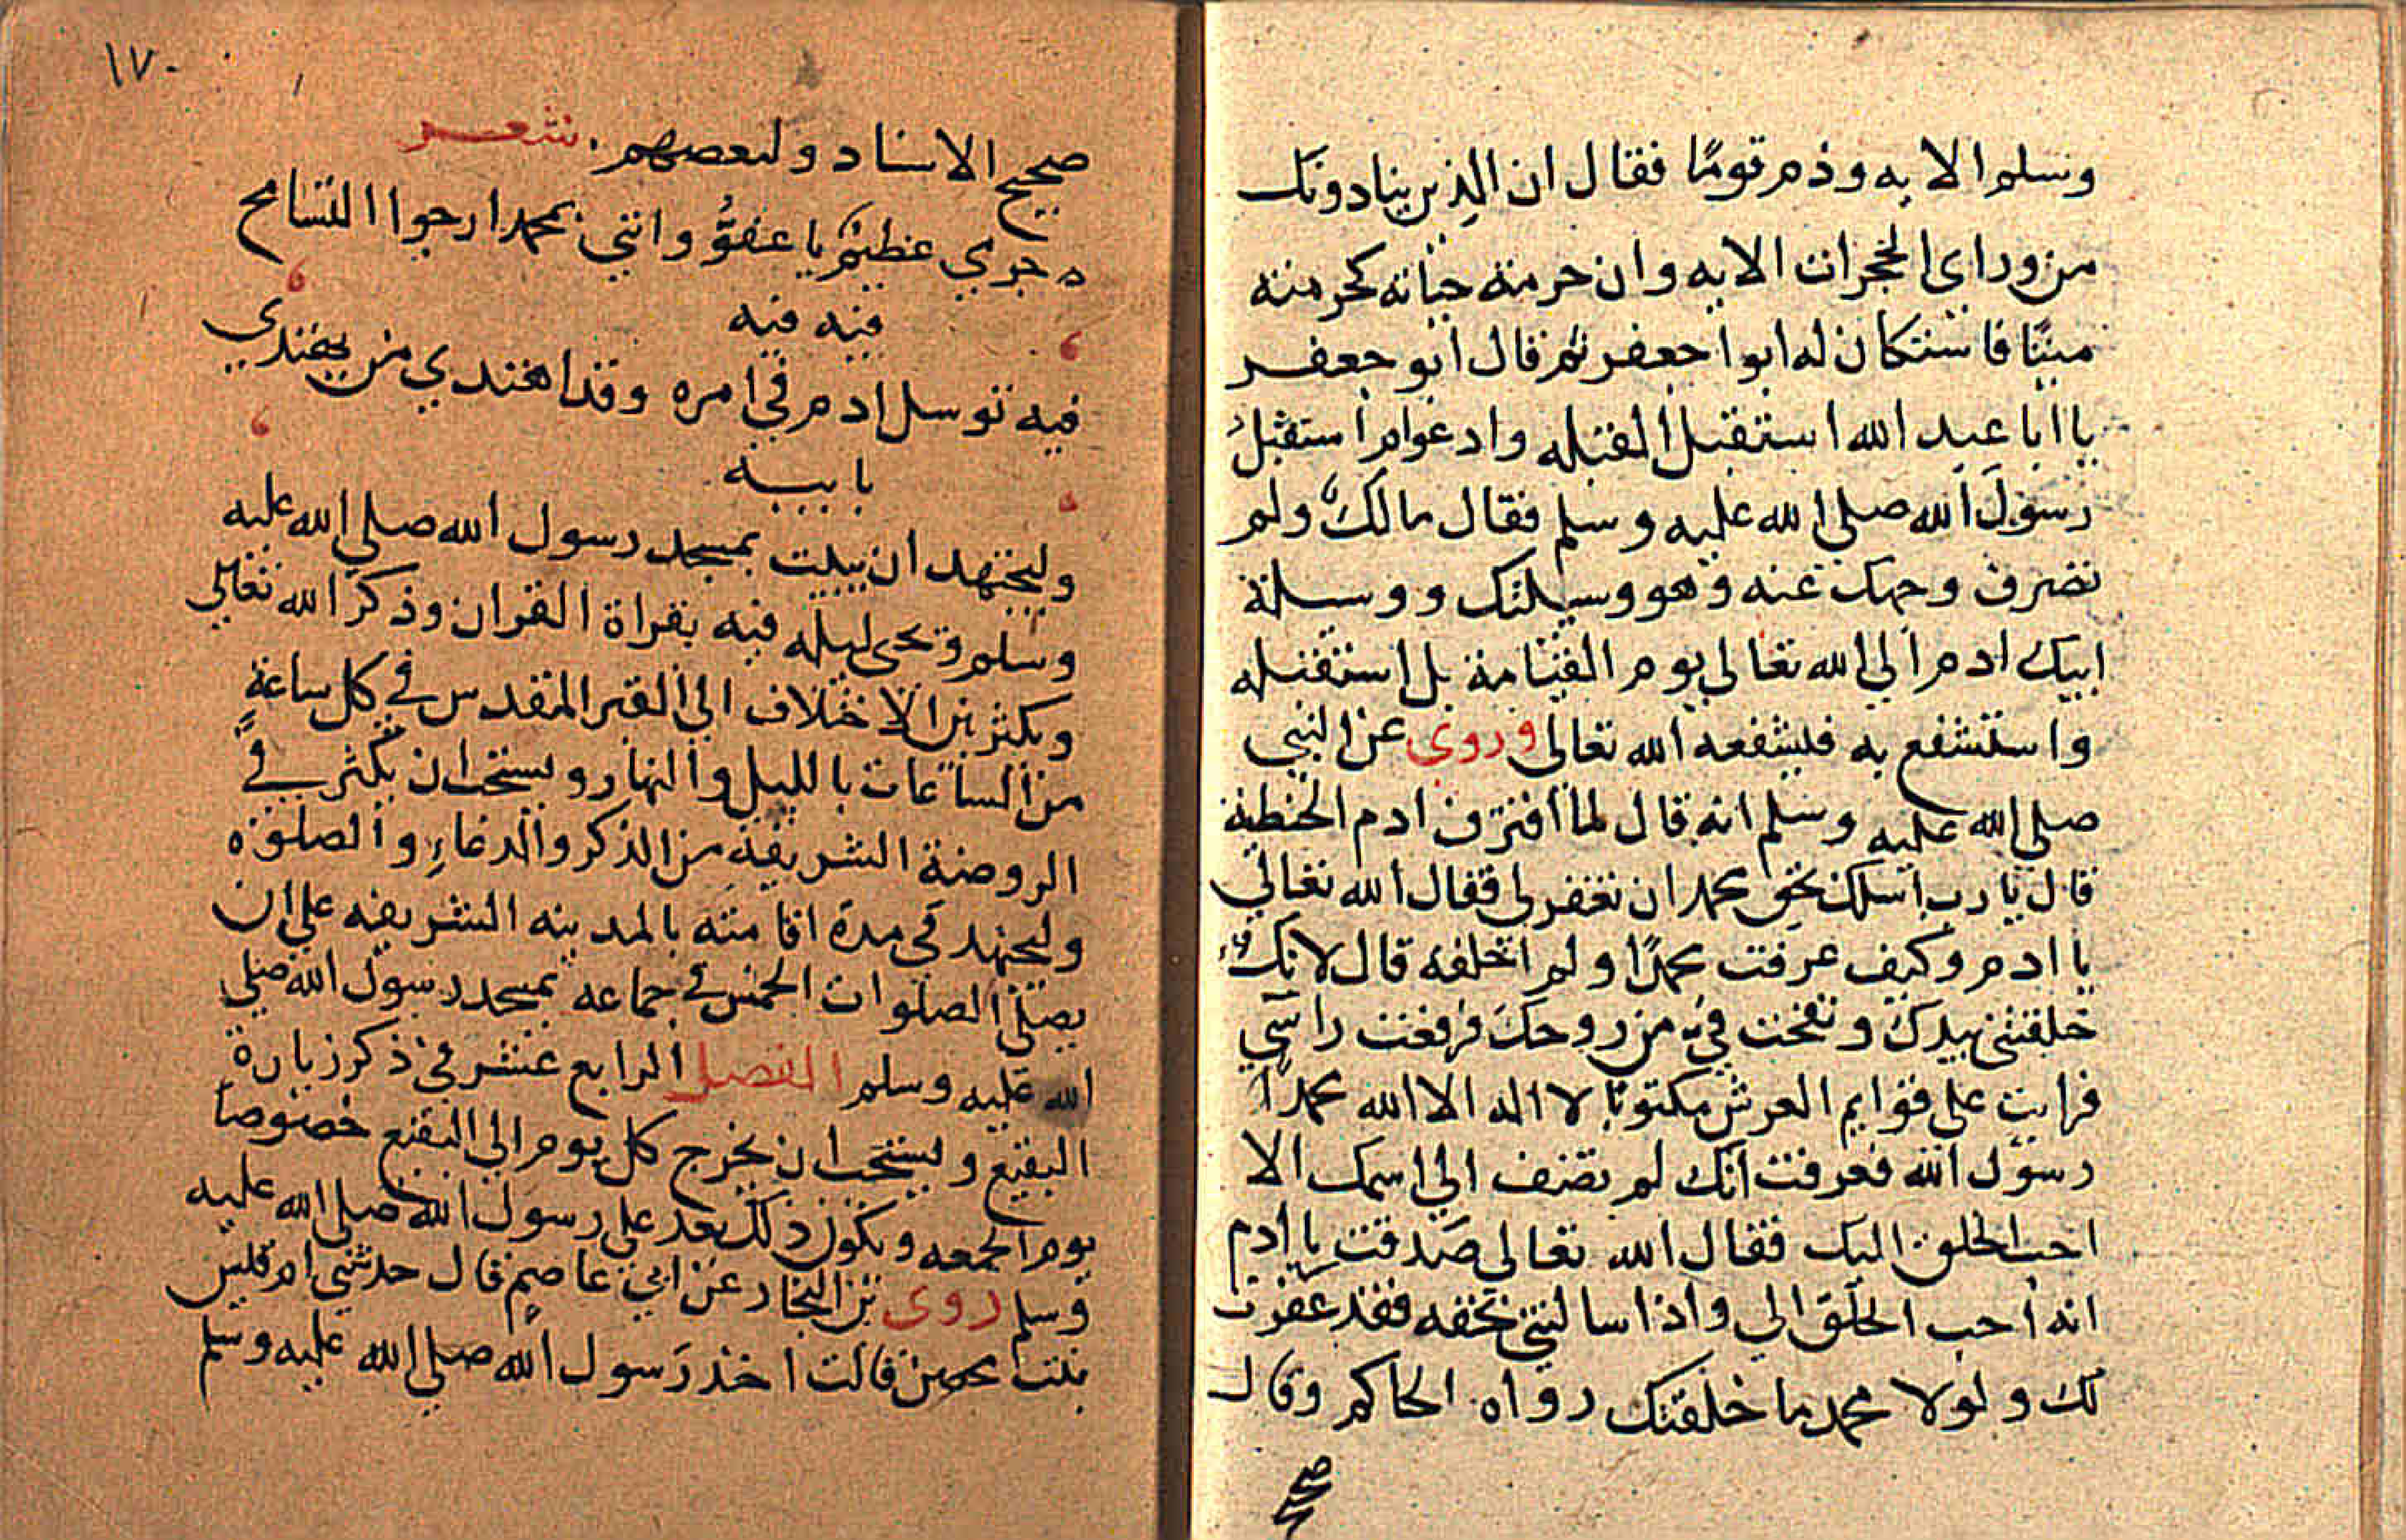 وسلم الايه وذم قومًا فقال ان الذين ينادونك
من وراي الحجرات الايه وان حرمته حياته كحرمته
ميتًا فاستكان له ابوا جعفر ثم قال ابو جعفر
يا ابا عبد الله استقبل القبله وادعوام استقبل
رسول الله صلي الله عليه وسلم فقال مالك ولم
تصرف وجهك عنه وهو وسيلتك ووسيلة
ابيك ادم الي الله تعالي يوم القيامة بل استقبله
واستشفع به فيشفعه الله تعالي وروي عن النبي
صلي الله عليه وسلم انه قال لما اقترف ادم الخطية
قال يا رب اسلك بحق محمد ان تغفر لي فقال الله تعالي
يا ادم وكيف عرفت محمدًا ولم اخلقه قال لانك
خلقتني بيدك ونفخت في من روحك فرفعت راسي
فرايت علي قوايم العرش مكتوبًا لا اله الا الله محمدًا
رسول الله فعرفت انك لم تضف الي اسمك الا
احب الخلق اليك فقال الله تعالي صدقت يا ادم
انه احب الخلق الي واذا سالتني بحقه فقد غفرت
لك ولولا محمد ما خلقتك رواه الحاكم وقال
صحيح
١٧٠
صحيح الاسناد ولبعضهم شعر
ه جرمي عظيم يا عفوُّ وانني بمحمد ارجوا التسامح
فيه فيه
فيه توسل ادم في امره وقد اهتدي من يقتدي
بابيه
وليجتهد ان يبيت بمسجد رسول الله صلي الله عليه
وسلم وتحي ليله فيه بقراة القران وذكر الله تعالي
ويكثر من الاختلاف الي القبر المقدس في كل ساعة
من الساعات بالليل والنهار ويستحب ان يكثر في
الروضة الشريفة من الذكر والدعاء والصلوة
وليجتهد في مدة اقامته بالمدينه الشريفه علي ان
يصلي الصلوات الخمس في جماعه بمسجد رسول الله صلي
الله عليه وسلم الفصل الرابع عشر في ذكر زيارة
البقيع ويستحب ان يخرج كل يوم الي البقيع خصوصًا
يوم الجمعه ويكون ذلك بعد علي رسول الله صلي الله عليه
وسلم روي بن النجار عن ابي عاصم قال حدثتني ام قيس
بنت محصن قالت اخذ رسول الله صلي الله عليه وسلم